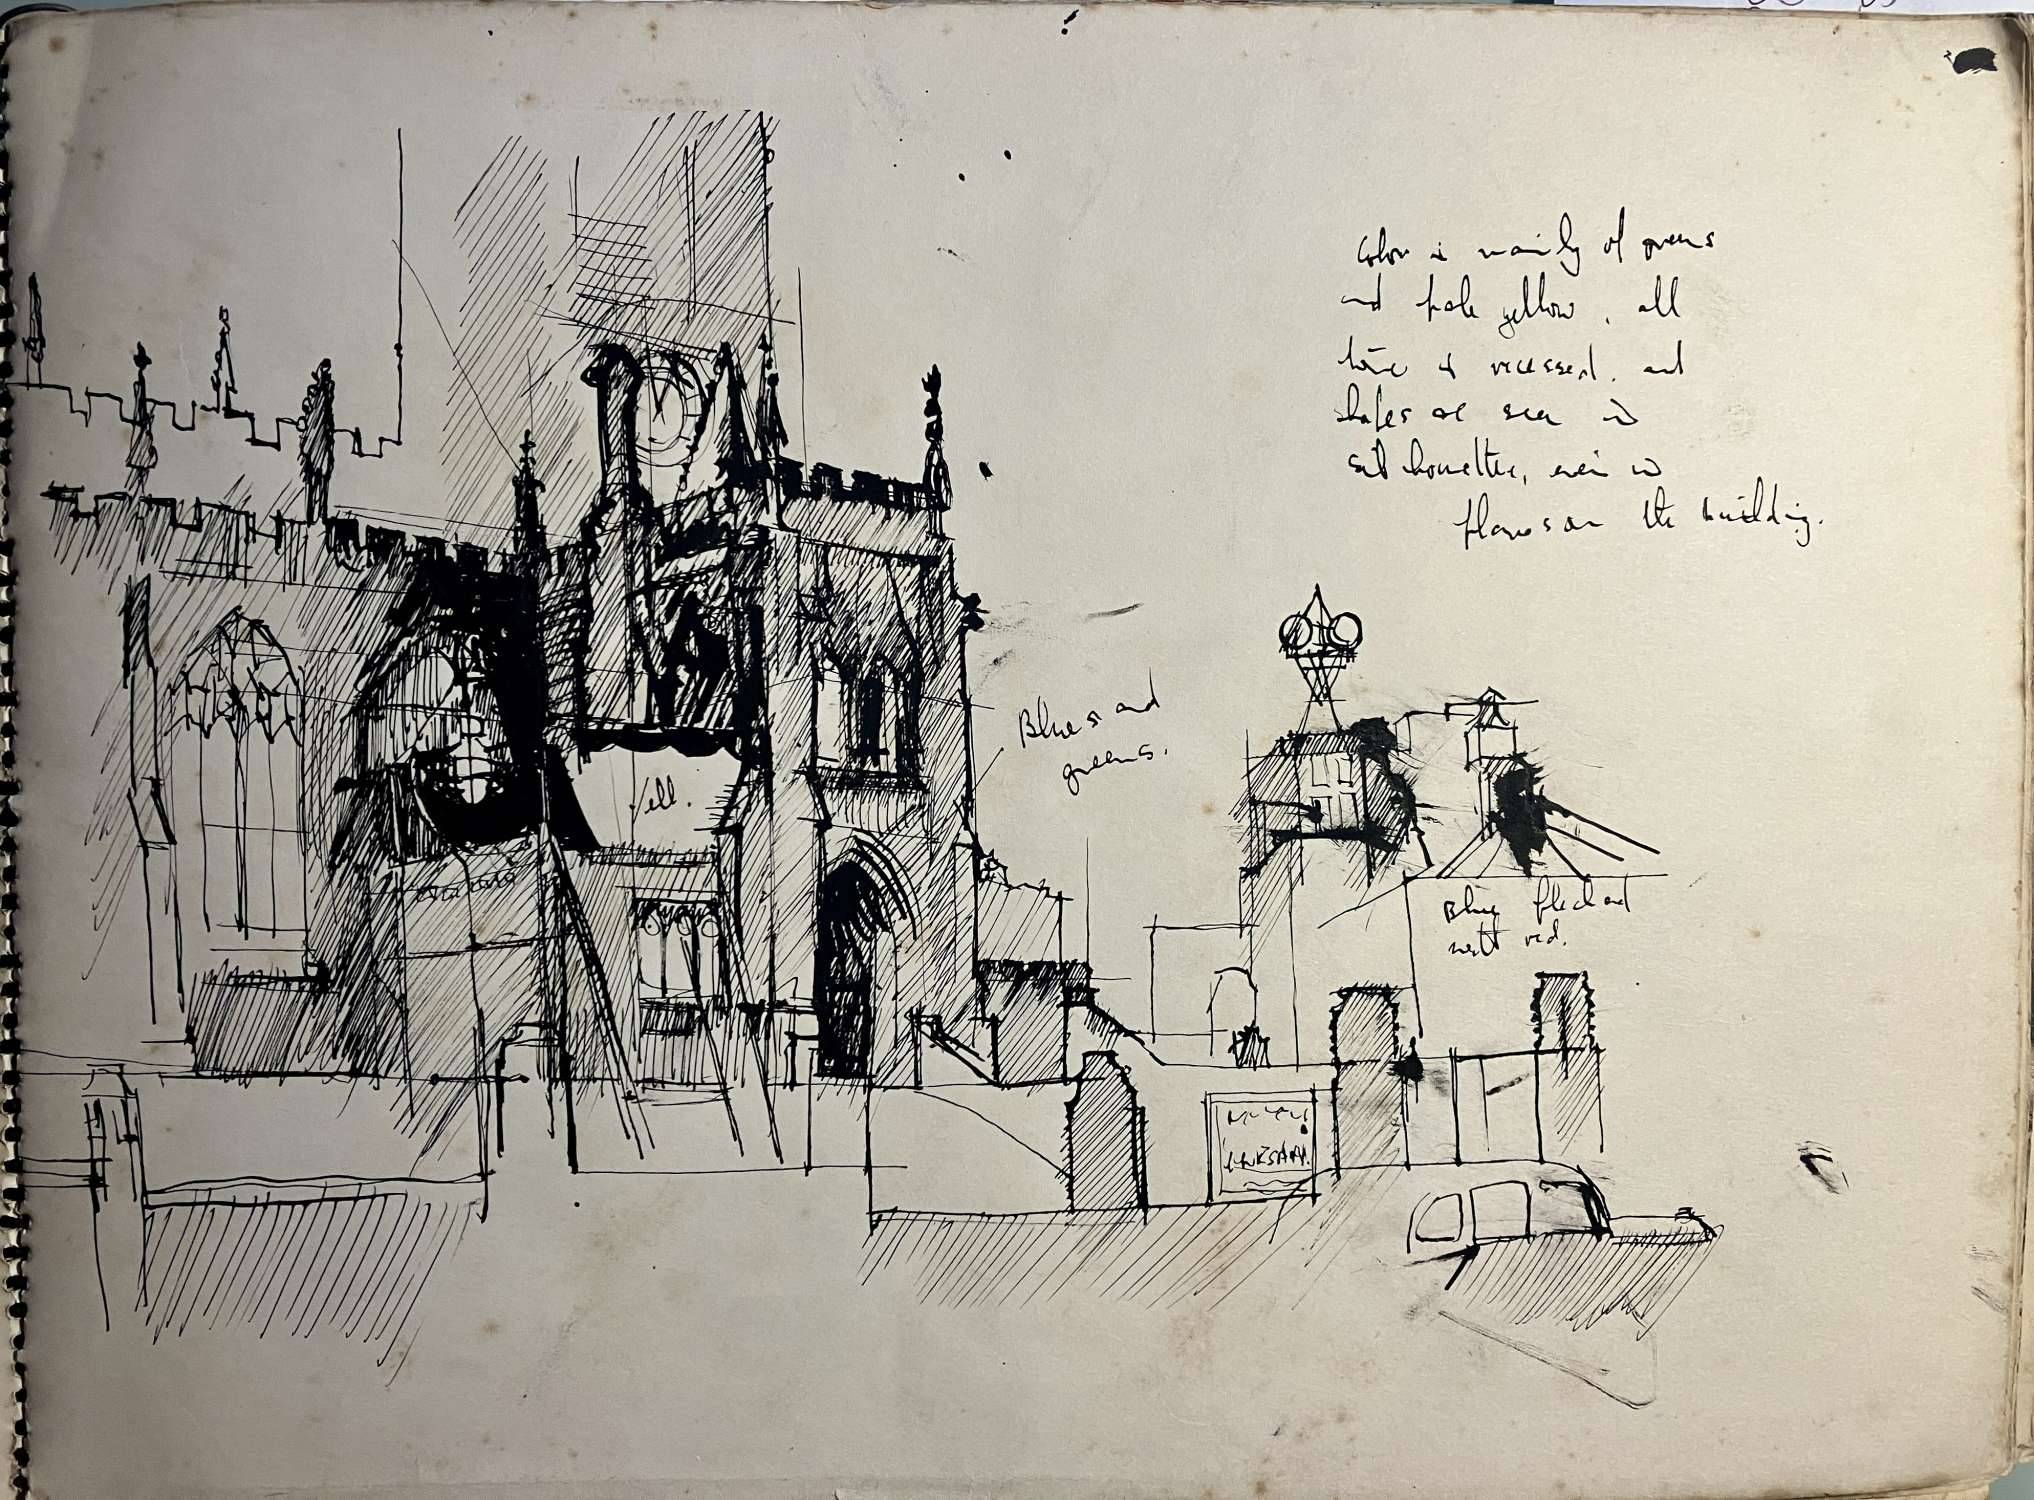 Color is mainly of greens
and pale yellow, all
tone is recessed, and
shapes are seen in
silhouette, even in
planes on the building.
Blues and
greens.
Yell.
Blue flecked
with red.